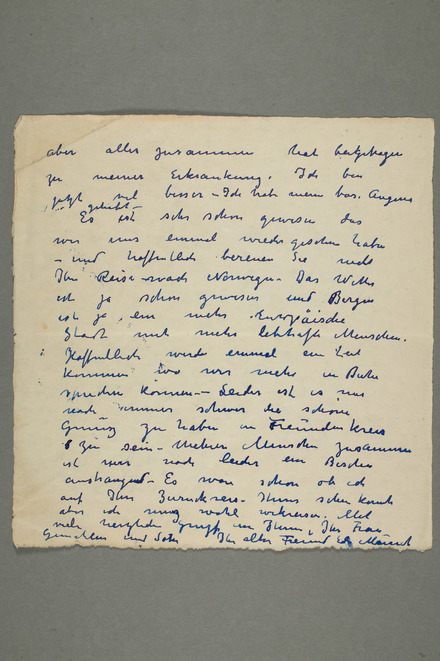 aber alles zusammen hat beigetragen
zu meiner Erkrankung. Ich bin
jetzt viel besser – Ich hab mein Augen
Es ist sehr schön gewesen das
wir uns einmal wieder gesehen haben
– und hoffentlich bereuen Sie nicht
Ihr Reise nach Norwegen – Das Wetter
ist ja schön gewesen und Bergen
ist ja ein mehr Europäische
Stadt mit mehr lebhafte Menschen.
Hoffentlich werde einmal ein Zeit
kommen wo wir mehr in Ruhe
sprechen können – Leider ist es mir
noch immer schwer die schöne
zu haben in Freunden Kreis
zu sein – Mehrere Menschen zusammen
ist mir noch leider ein Bischen
anstrengend – Es war schon ob ich
auf Ihre Ihnen sehen konnte
aber ich muss wohl Mit
viele herzliche an Ihnen, Ihr Frau
und Ihr alter Freund Edv Munch